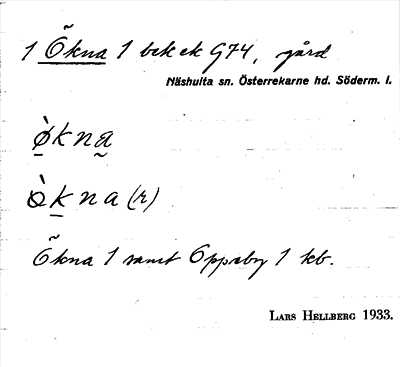 1 Ökna 1 bek ek G74, gård
Näshulta sn. Österrekarne hd. Söderm. l.
ø̀kna
òkna(r)
Ökna 1 samt Oppeby 1 kb.
Lars Hellberg 1933.